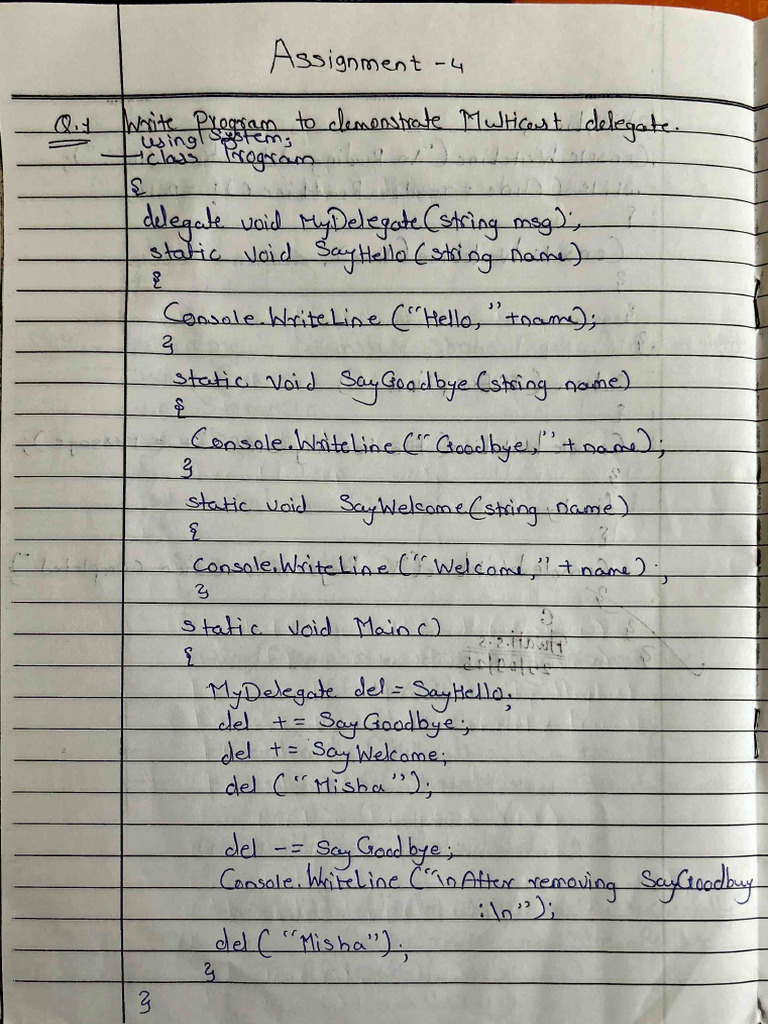 Assignment - 4
Q.1 Write Program to demonstrate Multicast delegate.
using System;
class Program
{
delegate void MyDelegate(string msg);
static void SayHello(string name)
{
Console.WriteLine("Hello, "+name);
}
static void SayGoodbye(string name)
{
Console.WriteLine("Goodbye," + name);
}
static void SayWelcome(string name)
{
Console.WriteLine("Welcome," + name);
}
static void Main()
{
MyDelegate del = SayHello;
del += SayGoodbye;
del += SayWelcome;
del ("Misha");
del -= SayGoodbye;
Console.WriteLine("\nAfter removing SayGoodbuy
:\n");
del ("Misha");
}
}